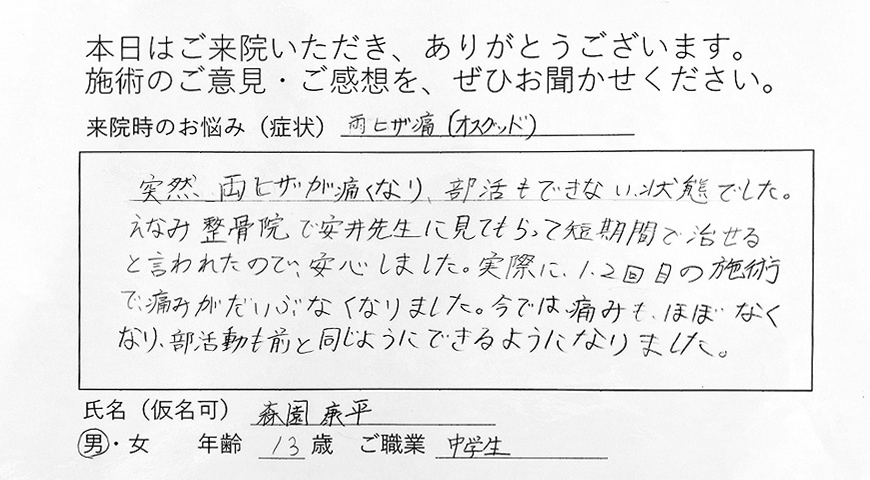 本日はご来院いただき、ありがとうございます。
施術のご意見・ご感想を、ぜひお聞かせください。
来院時のお悩み（症状） 両ヒザ痛（オスグッド）
突然、両ヒザが痛くなり、部活もできない状態でした。
えなみ整骨院で安井先生に見てもらって短期間で治せる
と言われたので、安心しました。実際に、1、2回目の施術
で、痛みがだいぶなくなりました。今では、痛みも、ほぼなく
なり、部活動も前と同じようにできるようになりました。
氏名（仮名可） 森園康平
男・女 年齢 13歳 ご職業 中学生